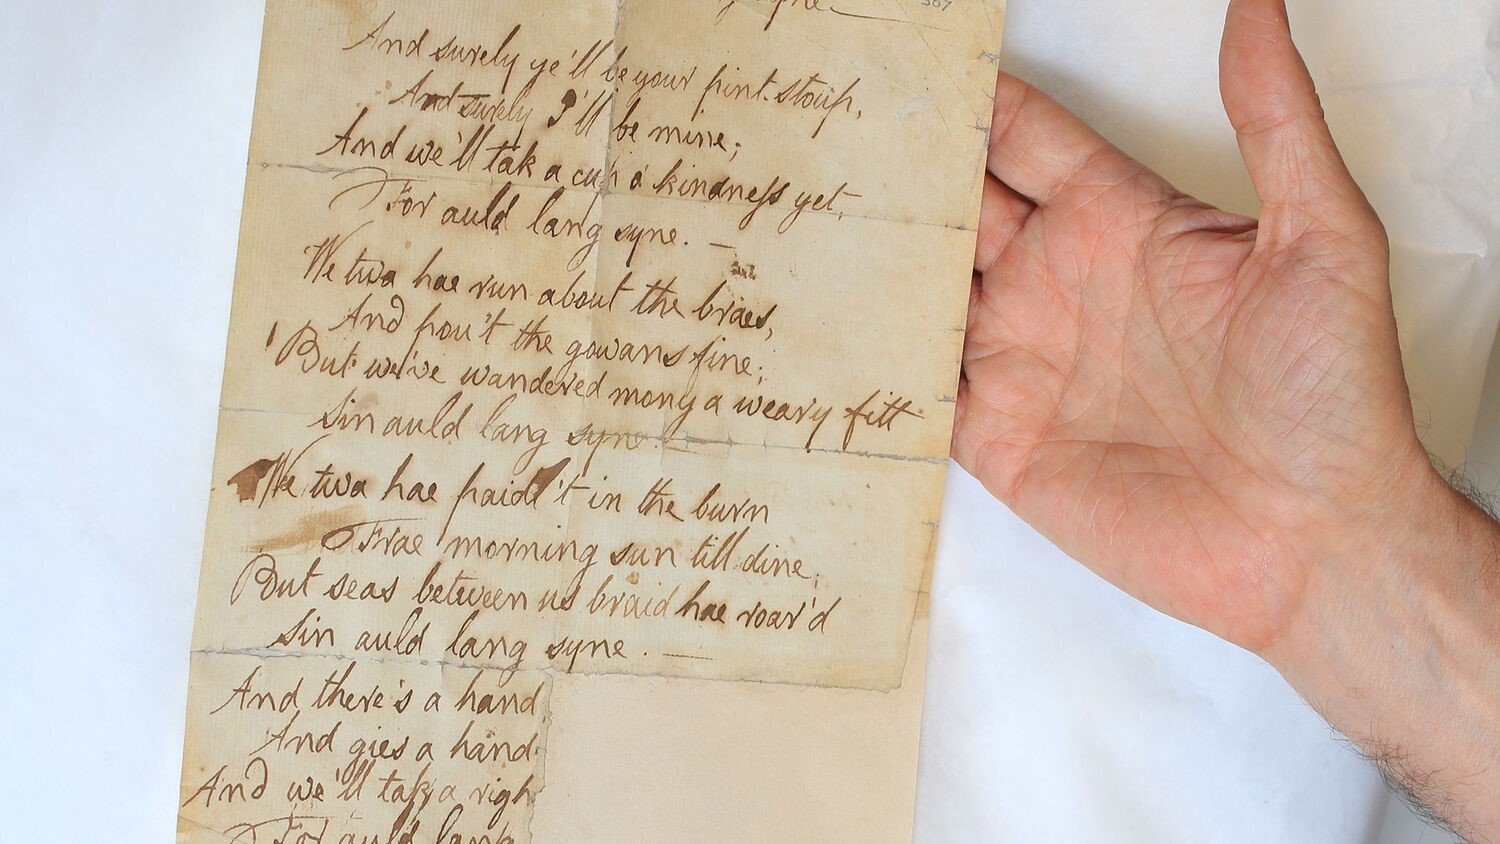 syne.
And surely ye'll be your pint stoup,
And surely I'll be mine;
And we'll tak a cup o' kindness yet,
For auld lang syne. —
We twa hae run about the braes,
And pou't the gowans fine;
But we've wandered mony a weary fitt
Sin auld lang syne. —
We twa hae paidl't in the burn
Frae morning sun till dine;
But seas between us braid hae roar'd
Sin auld lang syne. —
And there's a hand,
And gies a hand
And we'll tak a righ
For auld lang